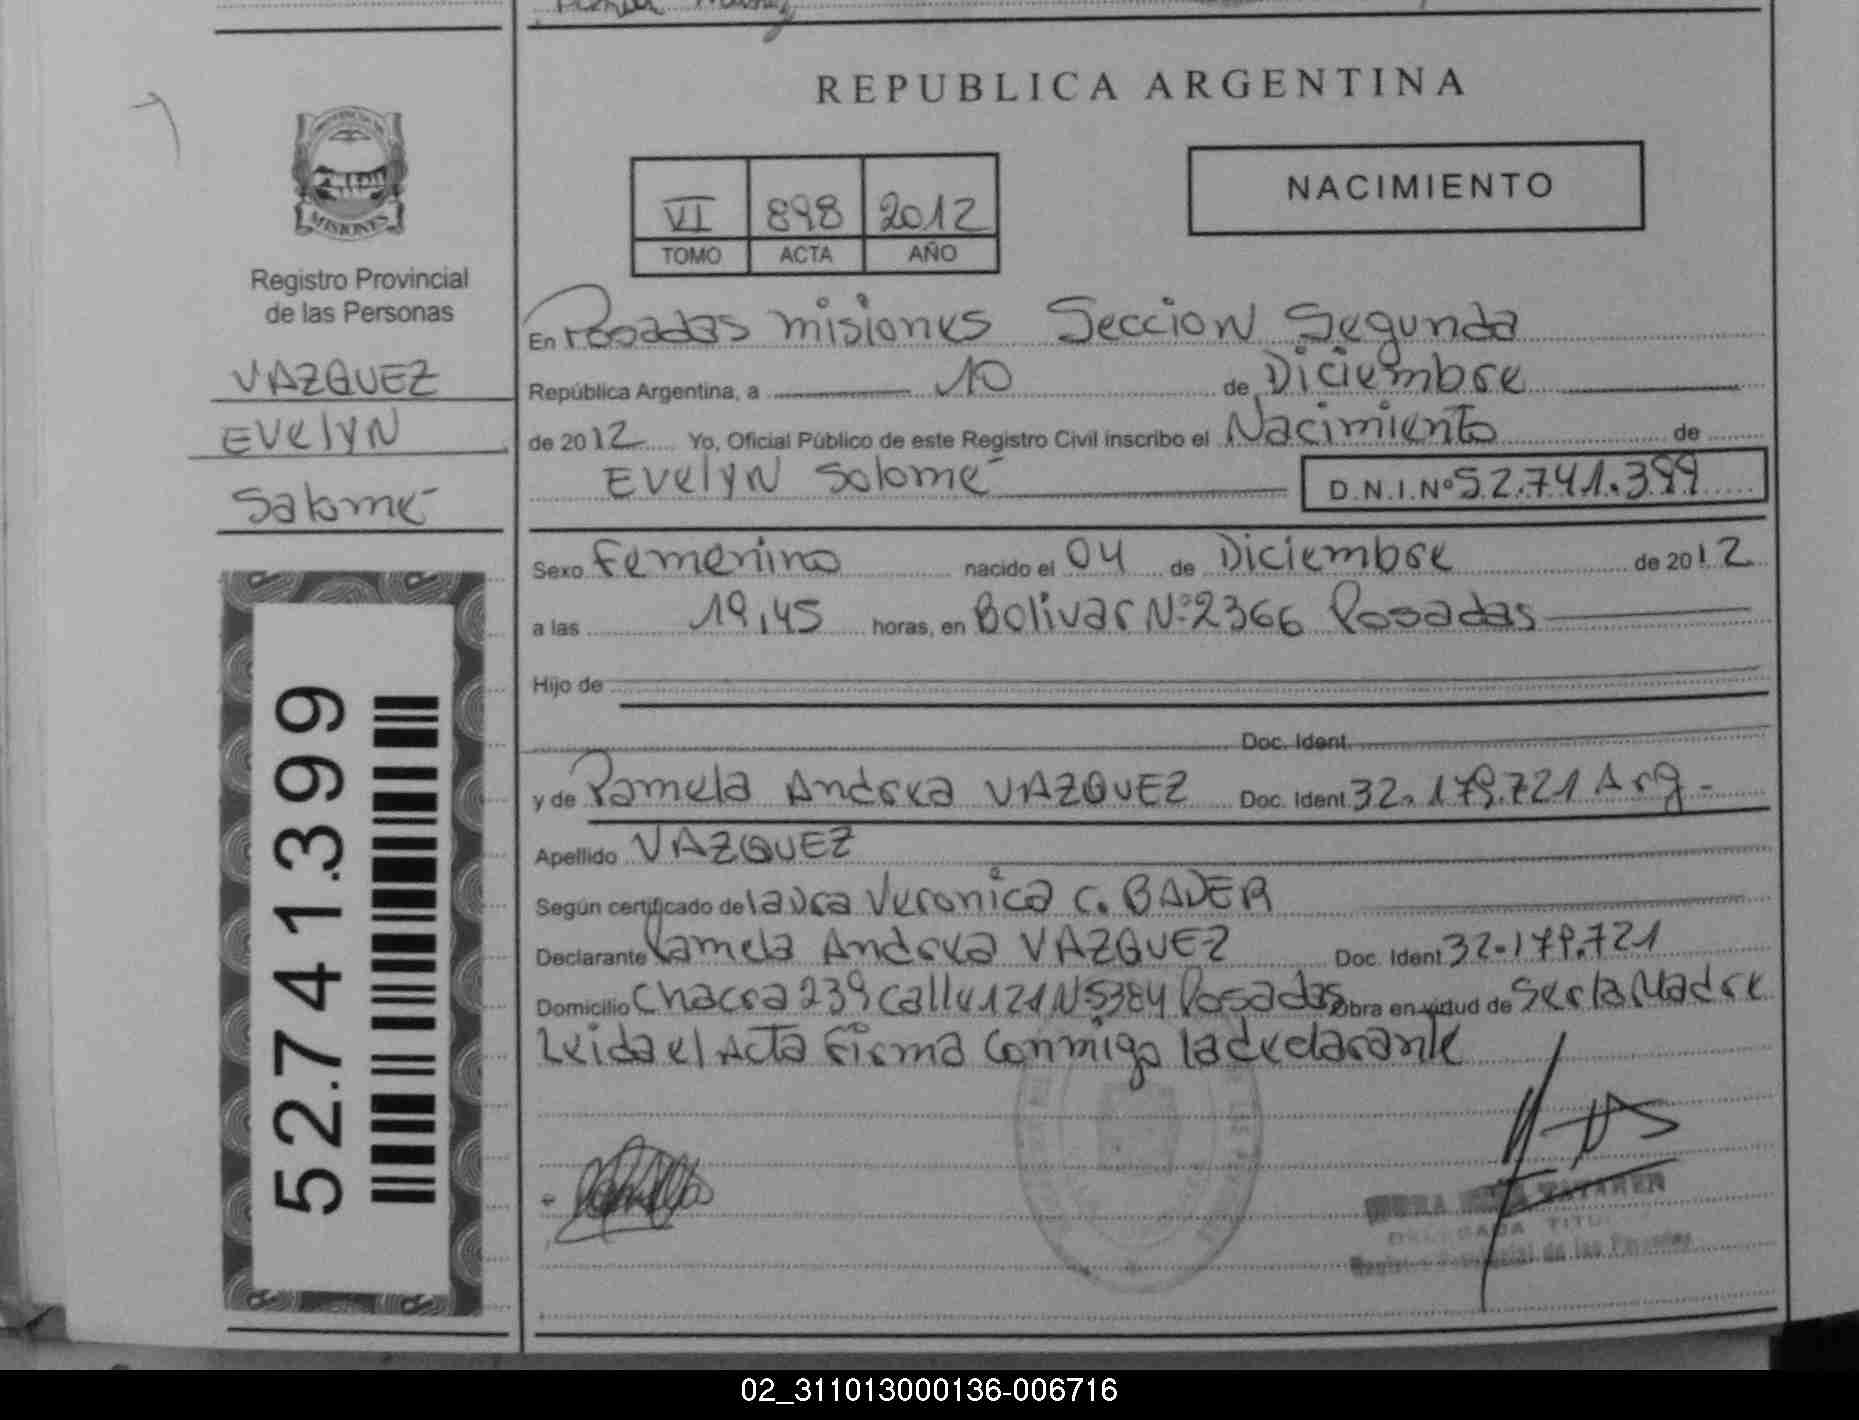 REPUBLICA ARGENTINA
NACIMIENTO
VI 898 2012
TOMO ACTA AÑO
MISIONES
Registro Provincial
de las Personas
VAZQUEZ
EVelyN
Salomé
52.741.399
En Posadas misiones Seccion Segunda
República Argentina, a 10 de Diciembre
de 2012 Yo, Oficial Público de este Registro Civil inscribo el Nacimiento de
EVelyN Salomé D.N.I.Nº 52.741.399
Sexo Femenino nacido el 04 de Diciembre de 2012
a las 19,45 horas, en Bolivar Nº 2366 Posadas
Hijo de
Doc. Ident.
y de Pamela Andrea VAZQUEZ Doc. Ident. 32.179.721 Arg-
Apellido VAZQUEZ
Según certificado de laura Veronica C. BADER
Declarante Pamela Andrea VAZQUEZ Doc. Ident. 32.179.721
Domicilio Chacra 239 Calle 121 N 5384 Posadas Obra en virtud de Ser la Madre
Leida el Acta Firma Conmigo la declarante
Registro Provincial de las Personas
02_311013000136-006716